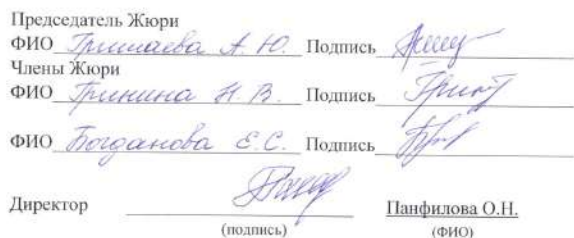 Председатель Жюри
ФИО Гришаева А. Ю. Подпись
Члены Жюри
ФИО Гринина Н. В. Подпись
ФИО Богданова Е.С. Подпись
Директор Панфилова О.Н.
(подпись) (ФИО)